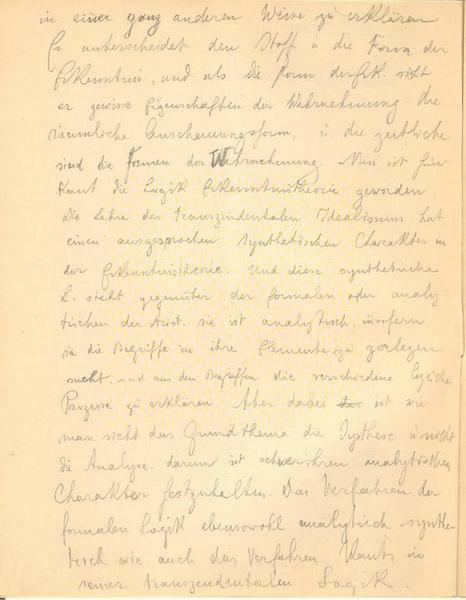 in einer ganz anderen Weise zu erklären
Er unterscheidet den Stoff u die Form der
Erkenntnis, und als die Form der Erk. sieht
er gewisse Eigenschaften der Wahrnehmung die
räumliche Anschauungsform, u die zeitliche
sind die Formen der Wahrnehmung. Nun ist für
Kant die Logik Erkenntnistheorie geworden.
Die Lehre des transzendentalen Idealismus hat
einen ausgesprochen synthetischen Charakter in
der Erkenntnistheorie. Und diese synthetische
L. steht gegenüber der formalen oder analy-
tischen der Arist. sie ist analytisch, insofern
sie die Begriffe in ihre Elemente zu zerlegen
sucht, und aus den Begriffen die verschiedene logische
Prozesse zu erklären Aber dabei ist wie
man sieht das Grundthema die Synthese u nicht
die Analyse. darum ist schwer ihren analytischen
Charakter festzuhalten. Das Verfahren der
formalen Logik ebensowohl analytisch-synthe-
tisch wie auch das Verfahren Kants in
seiner transzendentalen Logik.